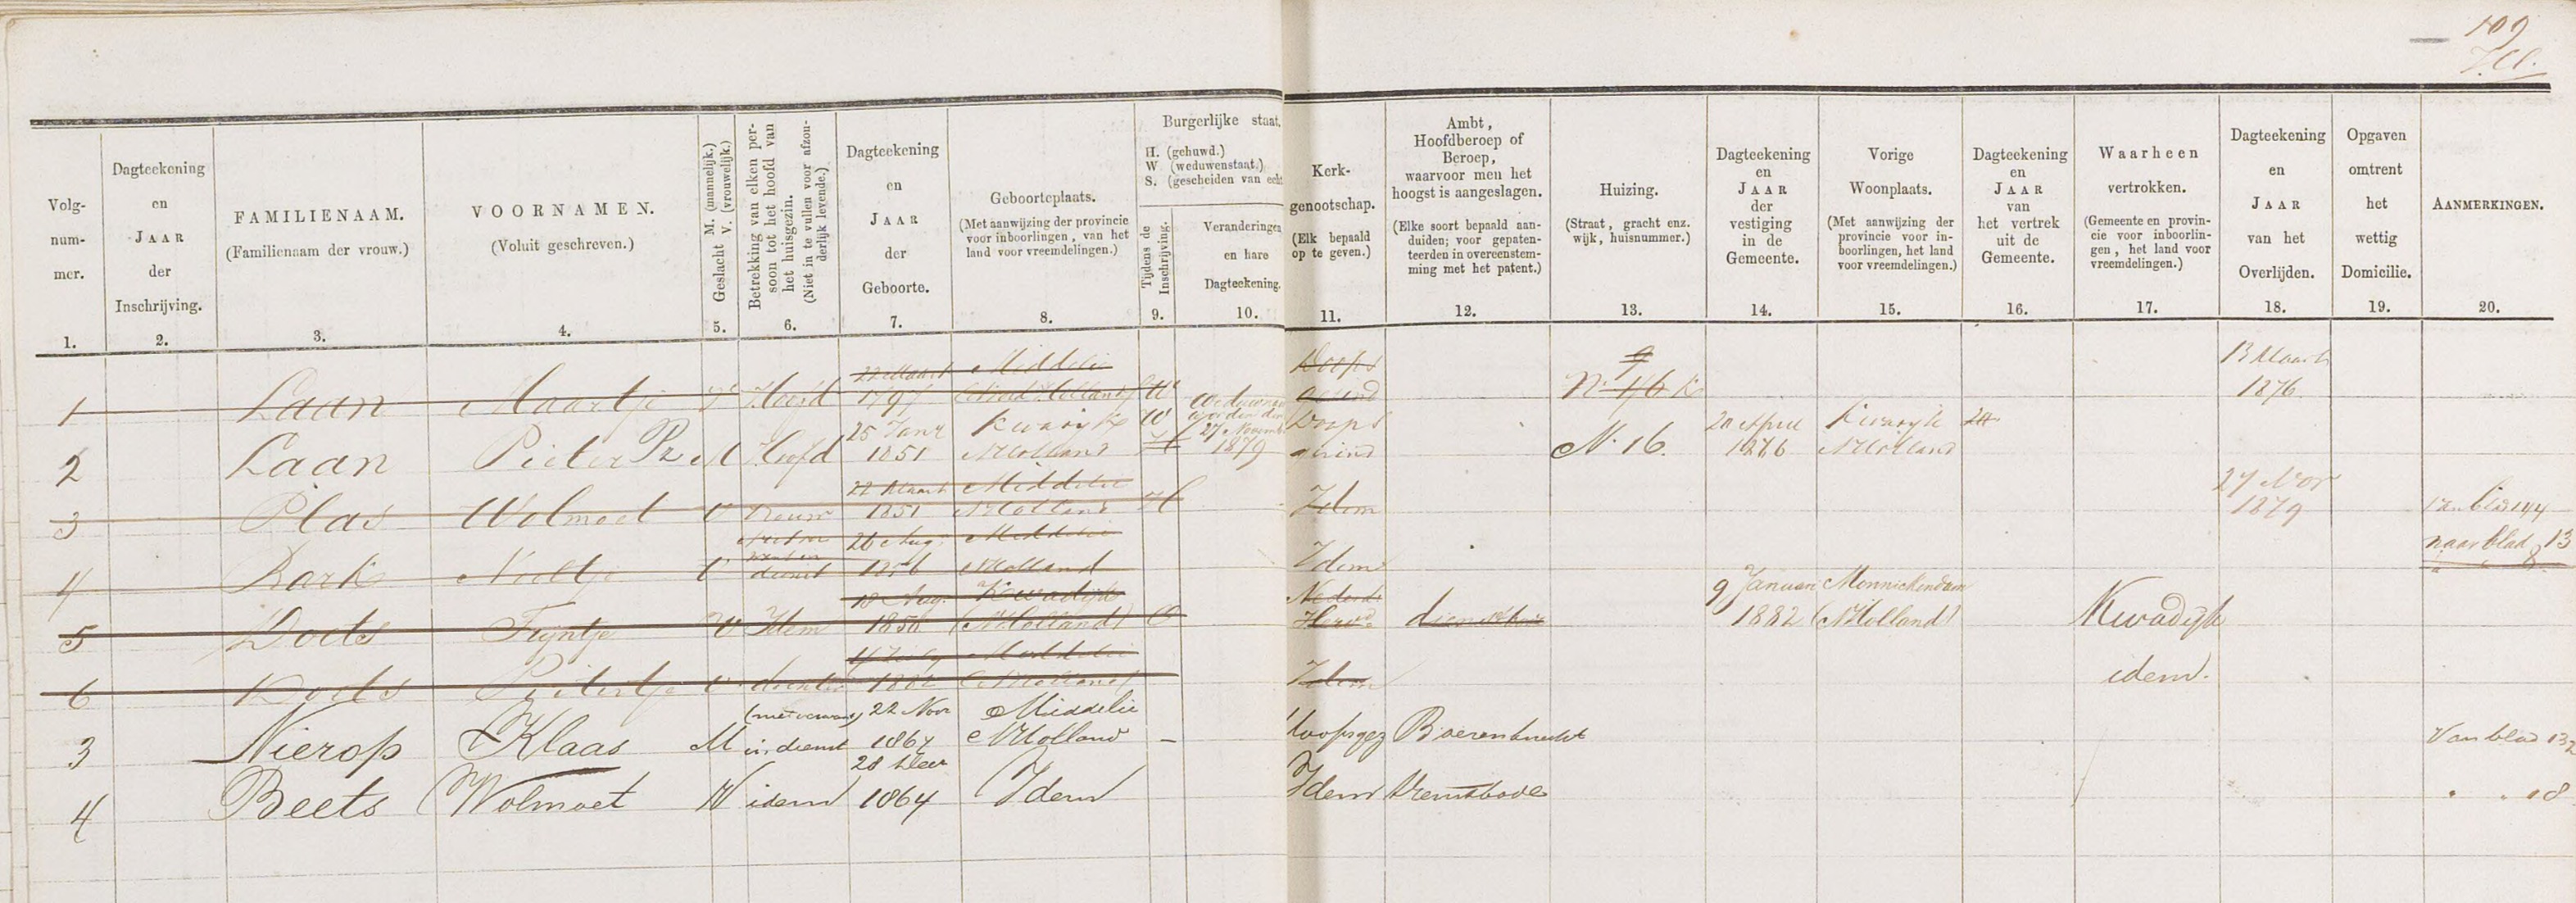 109
Volg-
num-
mer.
1.
Dagteekening
en
JAAR
der
Inschrijving.
2.
FAMILIENAAM.
(Familienaam der vrouw.)
3.
VOORNAMEN.
(Voluit geschreven.)
4.
Geslacht M. (mannelijk.)
V. (vrouwelijk.)
5.
Betrekking van elken per-
soon tot het hoofd van
het huisgezin.
(Niet in te vullen voor afzon-
derlijk levende.)
6.
Dagteekening
en
JAAR
der
Geboorte.
7.
Geboorteplaats.
(Met aanwijzing der provincie
voor inboorlingen, van het
land voor vreemdelingen.)
8.
Burgerlijke staat.
H. (gehuwd.)
W (weduwenstaat,)
S. (gescheiden van echt
Tijdens de
Inschrijving.
9.
Veranderingen
en hare
Dagteekening.
10.
Kerk-
genootschap.
(Elk bepaald
op te geven.)
11.
Ambt,
Hoofdberoep of
Beroep,
waarvoor men het
hoogst is aangeslagen.
(Elke soort bepaald aan-
duiden; voor gepaten-
teerden in overeenstem-
ming met het patent.)
12.
Huizing.
(Straat, gracht enz.
wijk, huisnummer.)
13.
Dagteekening
en
JAAR
der
vestiging
in de
Gemeente.
14.
Vorige
Woonplaats.
(Met aanwijzing der
provincie voor in-
boorlingen, het land
voor vreemdelingen.)
15.
Dagteekening
en
JAAR
van
het vertrek
uit de
Gemeente.
16.
Waarheen
vertrokken.
(Gemeente en provin-
cie voor inboorlin-
gen, het land voor
vreemdelingen.)
17.
Dagteekening
en
JAAR
van het
Overlijden.
18.
Opgaven
omtrent
het
wettig
Domicilie.
19.
AANMERKINGEN.
20.
22 Maart Middelie Doops 9 13 Maart
1 Laan Maartje V Hoofd 1797 (Noord Holland) W gezind N. 16 1876
25 Janr Kwadijk W 27 Novemb Doops 20 April Kwadijk
2 Laan Pieter Pz M Hoofd 1851 NHolland H 1879 gezind N. 16. 1876 NHolland
22 Maart Middelie 27 Nov
3 Plas Wolmoet V Vrouw 1851 NHolland H Idem 1879 van blad 144
26 Aug. Middelie naar blad 13
4 Neeltje V dienst 1856 NHolland Idem
18 Aug. Kwadijk Nederd 9 Januari Monnickendam
5 Doets Trijntje V Idem (NHolland) O Hervd dienstbode 1882 (NHolland) Kwadijk
Middelie
6 Doets Pietertje V dochter (NHolland) Idem idem.
22 Nov Middelie
3 Nierop Klaas M in dienst 1867 NHolland - Doopsgez Boerenknecht Van blad 132
28
4 Beets Wolmoet V idem 1864 Idem Idem Dienstbode " " 18